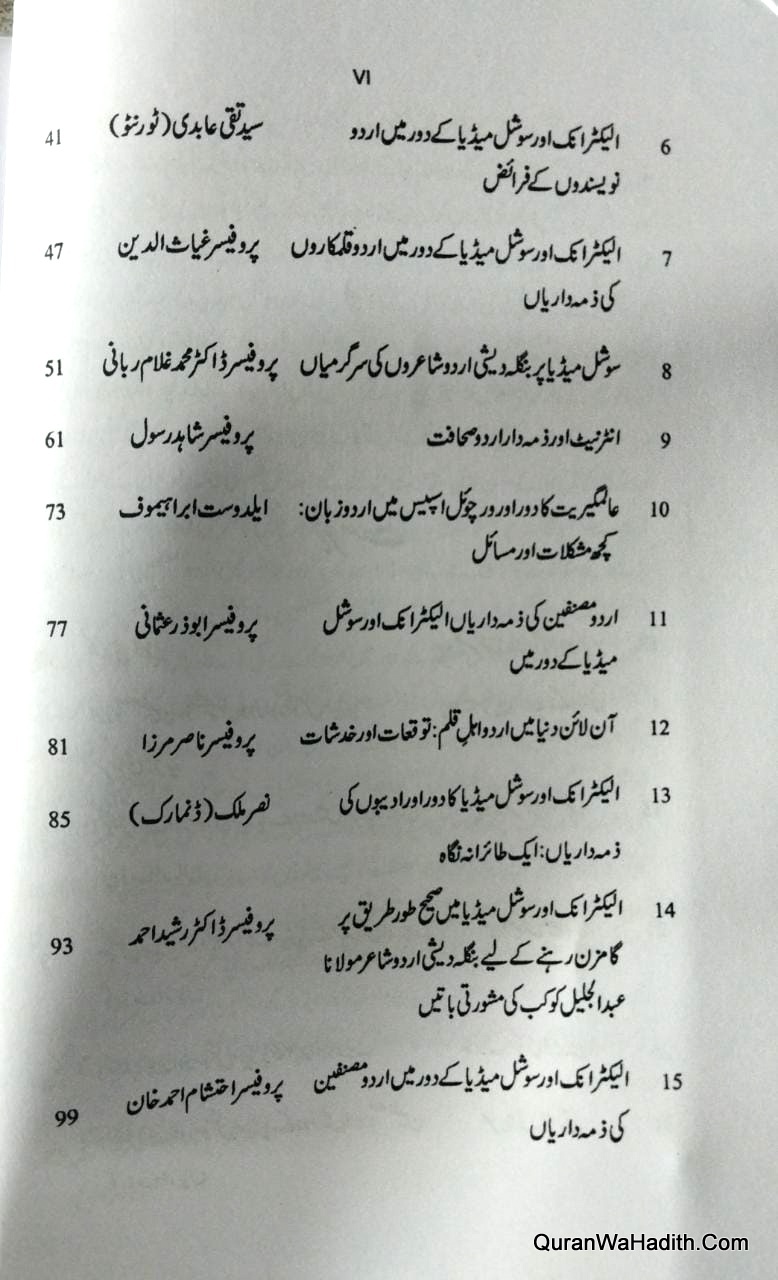 VI
6 الیکٹرانک اور سوشل میڈیا کے دور میں اردو سید تقی عابدی (ٹورنٹو) 41
نویسندوں کے فرائض
7 الیکٹرانک اور سوشل میڈیا کے دور میں اردو قلمکاروں پروفیسر غیاث الدین 47
کی ذمہ داریاں
8 سوشل میڈیا پر بنگلہ دیشی اردو شاعروں کی سرگرمیاں پروفیسر ڈاکٹر محمد غلام ربانی 51
9 انٹرنیٹ اور ذمہ دار اردو صحافت پروفیسر شاہد رسول 61
10 عالمگیریت کا دور اور ورچوئل اسپیس میں اردو زبان: ایلدوست ابراہیموف 73
کچھ مشکلات اور مسائل
11 اردو مصنفین کی ذمہ داریاں الیکٹرانک اور سوشل پروفیسر ابوذر عثمانی 77
میڈیا کے دور میں
12 آن لائن دنیا میں اردو اہلِ قلم: توقعات اور خدشات پروفیسر ناصر مرزا 81
13 الیکٹرانک اور سوشل میڈیا کا دور اور ادیبوں کی نصر ملک (ڈنمارک) 85
ذمہ داریاں: ایک طائرانہ نگاہ
14 الیکٹرانک اور سوشل میڈیا میں صحیح طور طریق پر پروفیسر ڈاکٹر رشید احمد 93
گامزن رہنے کے لیے بنگلہ دیشی اردو شاعر مولانا
عبدالجلیل کوکب کی مشورتی باتیں
15 الیکٹرانک اور سوشل میڈیا کے دور میں اردو مصنفین پروفیسر احتشام احمد خان 99
کی ذمہ داریاں
QuranWaHadith.Com